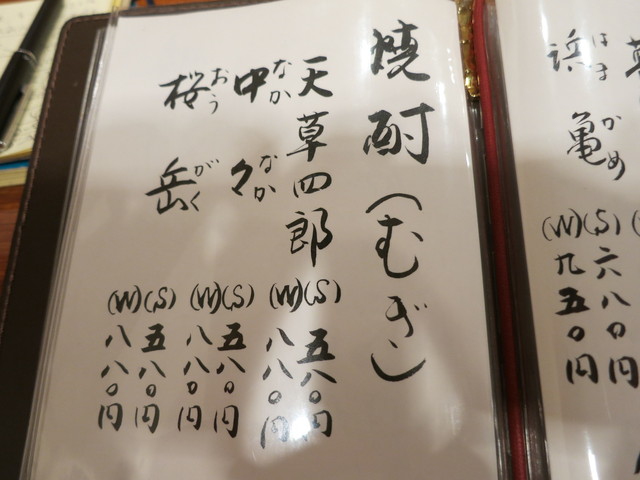 草
浜 はま
亀 かめ
(S) 六八〇円
(W) 九五〇円
焼酎(むぎ)
天草四郎
(S) 五八〇円
(W) 八八〇円
中々 なかなか
(S) 五八〇円
(W) 八八〇円
桜岳 おうがく
(S) 五八〇円
(W) 八八〇円